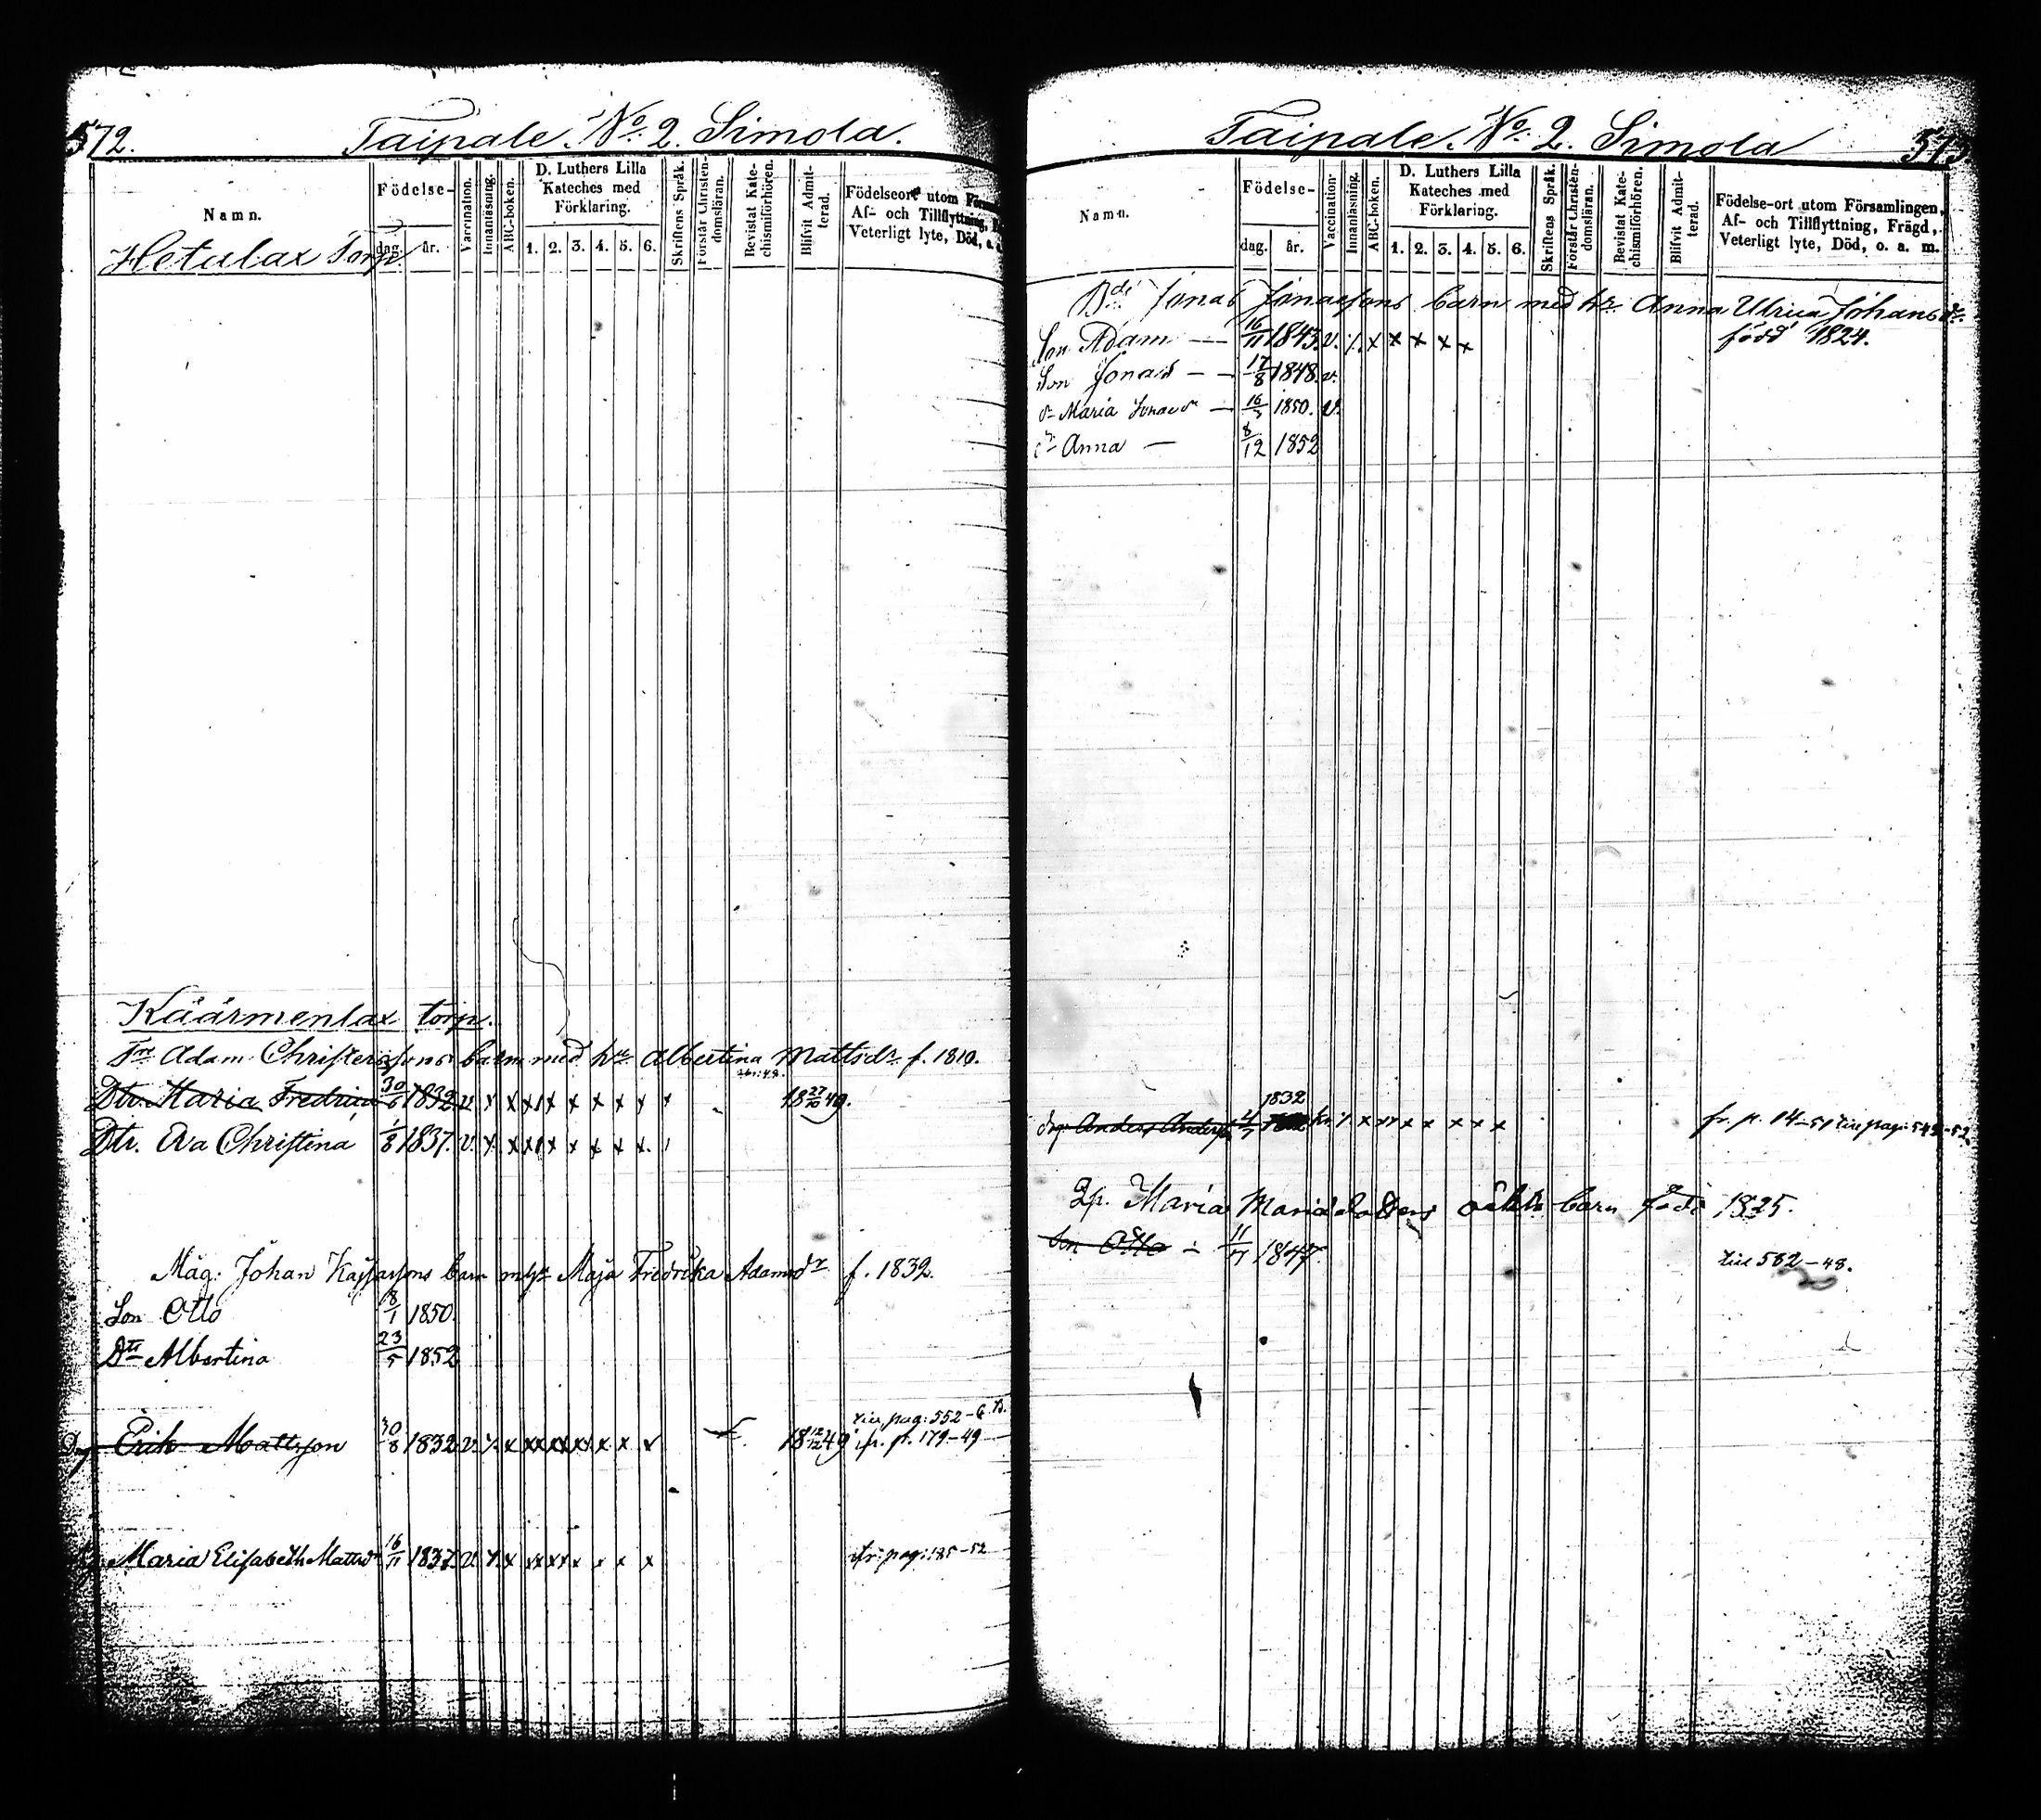 572.
Taipale. No. 2. Simola.
Namn.
Födelse-
dag.
år.
Vaccination.
Innanläsning.
ABC-boken.
D. Luthers Lilla
Kateches med
Förklaring.
1. 2. 3. 4. 5. 6.
Skriftens Språk.
Förstår Christen-
domsläran.
Bevistat Kate-
chismiförhören.
Blifvit Admit-
terad.
Födelseort utom
Af- och Tillflyttning,
Veterligt lyte, Död, o. a.
Hetulax Torp
Käärmenlax torp.
Adam Christersons barn med hu Albertina Mattsdr f. 1810.
Dtr. Maria Fredrica 30/6 1832 v. x x x x x x x x x 18 27/10 49.
Dtr. Eva Christina 1/8 1837. v. x x x x x x x x
Måg. Johan Kajsarsons barn Maja Fredrika Adamsdr f. 1832.
Son Otto 8/1 1850.
Dtr Albertina 23/5 1852
pag: 552-
Erik Mattsson 30/8 1832 v. x x x x x x x 18 12/12 49 fr. p. 179-49
Maria Elisabeth Mattsdr 16/11 1837. v. x x x x x x x fr: pag: 185-52
Taipale. No. 2. Simola
573
Namn.
Födelse-
dag.
år.
Vaccination
Innanläsning.
ABC-boken.
D. Luthers Lilla
Kateches med
Förklaring.
1. 2. 3. 4. 5. 6.
Skriftens Språk.
Förstår Christen-
domsläran.
Bevistat Kate-
chismiförhören.
Blifvit Admit-
terad.
Födelse-ort utom Församlingen,
Af- och Tillflyttning, Frägd,
Veterligt lyte, Död, o. a. m.
Jonas Jonassons barn med hu Anna Ulrica Johansdr
Son Adam — 16/11 1843. v. x x x x x född 1824.
Son Jonas — 17/8 1848. v.
dr Maria Jonasdr — 16/7 1850. v.
dr Anna — 8/12 1852
1832
Anders Andersson 4/7 x x x x x x x fr. p. 14-51
Maria Mariadotters oäkta barn född 1825.
Son Otto — 11/11 1847. till 582-48.